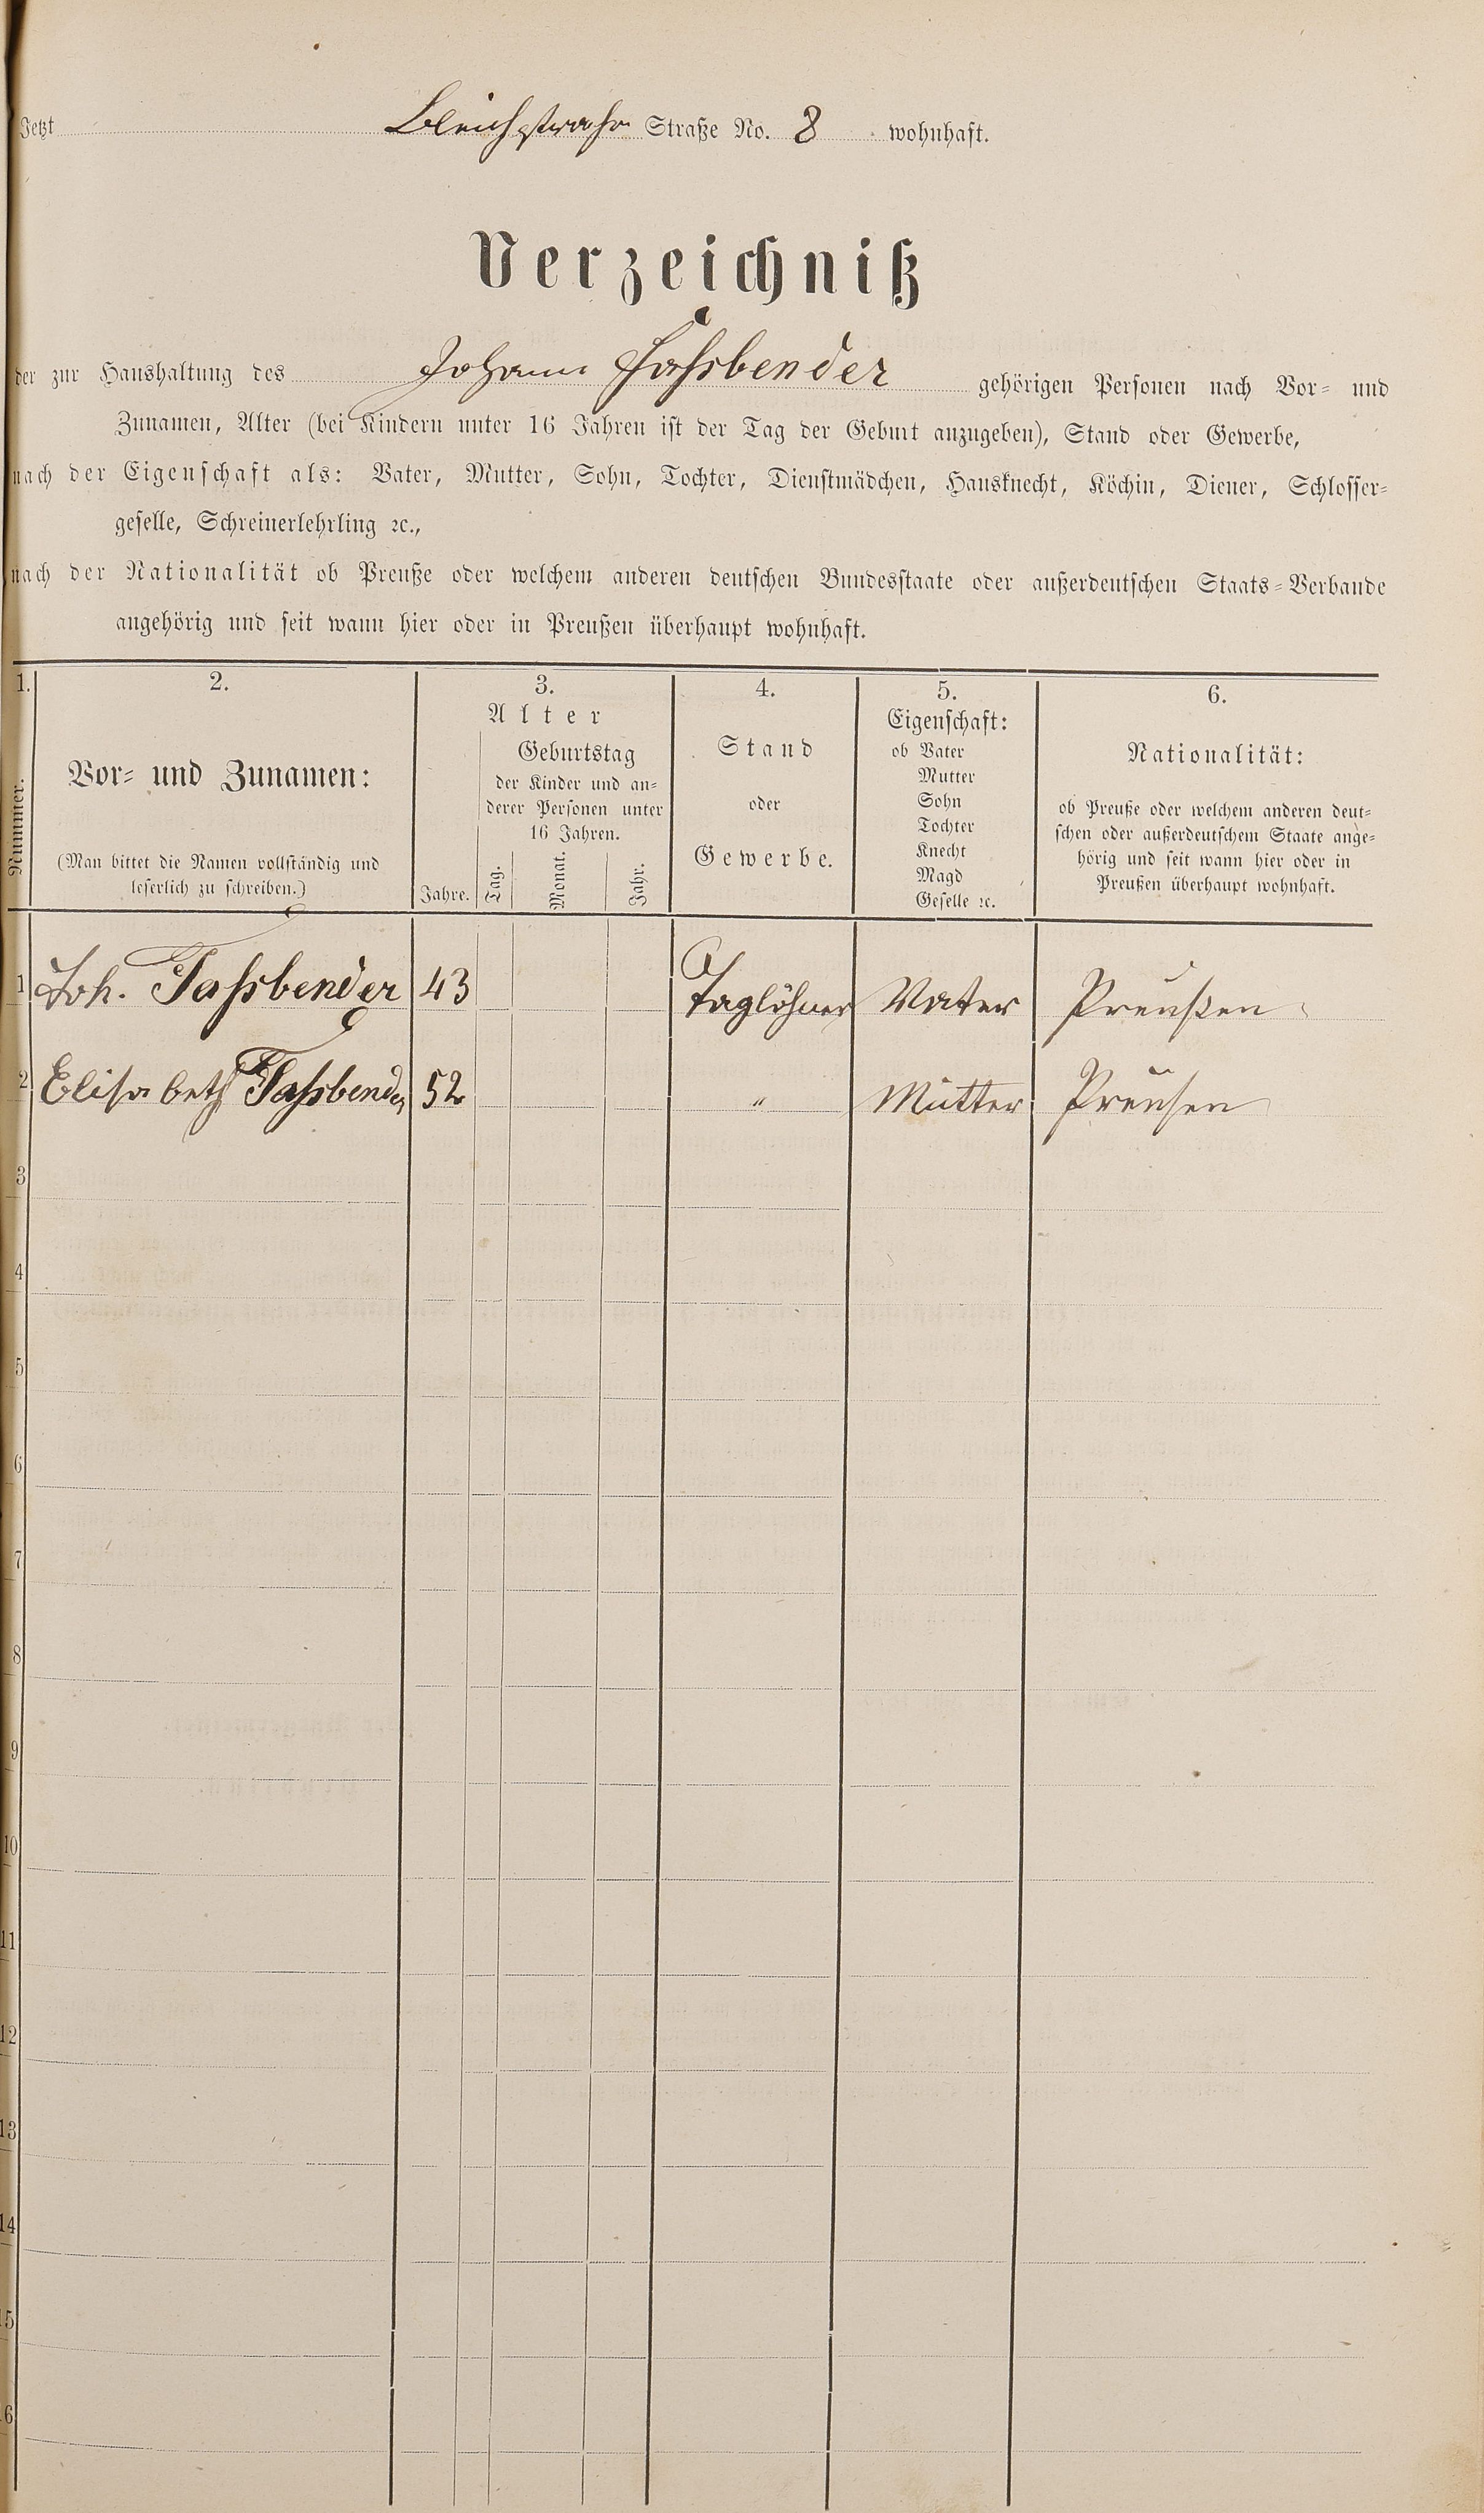 Jetzt Bleichstrasse Straße No. 8 wohnhaft.
Verzeichniß
der zur Haushaltung des Johann Fassbender gehörigen Personen nach Vor- und
Zunamen, Alter (bei Kindern unter 16 Jahren ist der Tag der Geburt anzugeben), Stand oder Gewerbe,
nach der Eigenschaft als: Vater, Mutter, Sohn, Tochter, Dienstmädchen, Hausknecht, Köchin, Diener, Schlosser-
geselle, Schreinerlehrling ꝛc.,
nach der Nationalität ob Preuße oder welchem anderen deutschen Bundesstaate oder außerdeutschen Staats-Verbande
angehörig und seit wann hier oder in Preußen überhaupt wohnhaft.
1.
Nummer.
2.
Vor- und Zunamen:
(Man bittet die Namen vollständig und
leserlich zu schreiben.)
3.
Alter
Jahre.
Geburtstag
der Kinder und an-
derer Personen unter
16 Jahren.
Tag.
Monat.
Jahr.
4.
Stand
oder
Gewerbe.
5.
Eigenschaft:
ob Vater
Mutter
Sohn
Tochter
Knecht
Magd
Geselle ꝛc.
6.
Nationalität:
ob Preuße oder welchem anderen deut-
schen oder außerdeutschem Staate ange-
hörig und seit wann hier oder in
Preußen überhaupt wohnhaft.
1 Joh. Fassbender 43 Taglöhner Vater Preußen
2 Elisabeth Fassbender 52 " Mutter Preusen
3
4
5
6
7
8
9
10
11
12
13
14
15
16